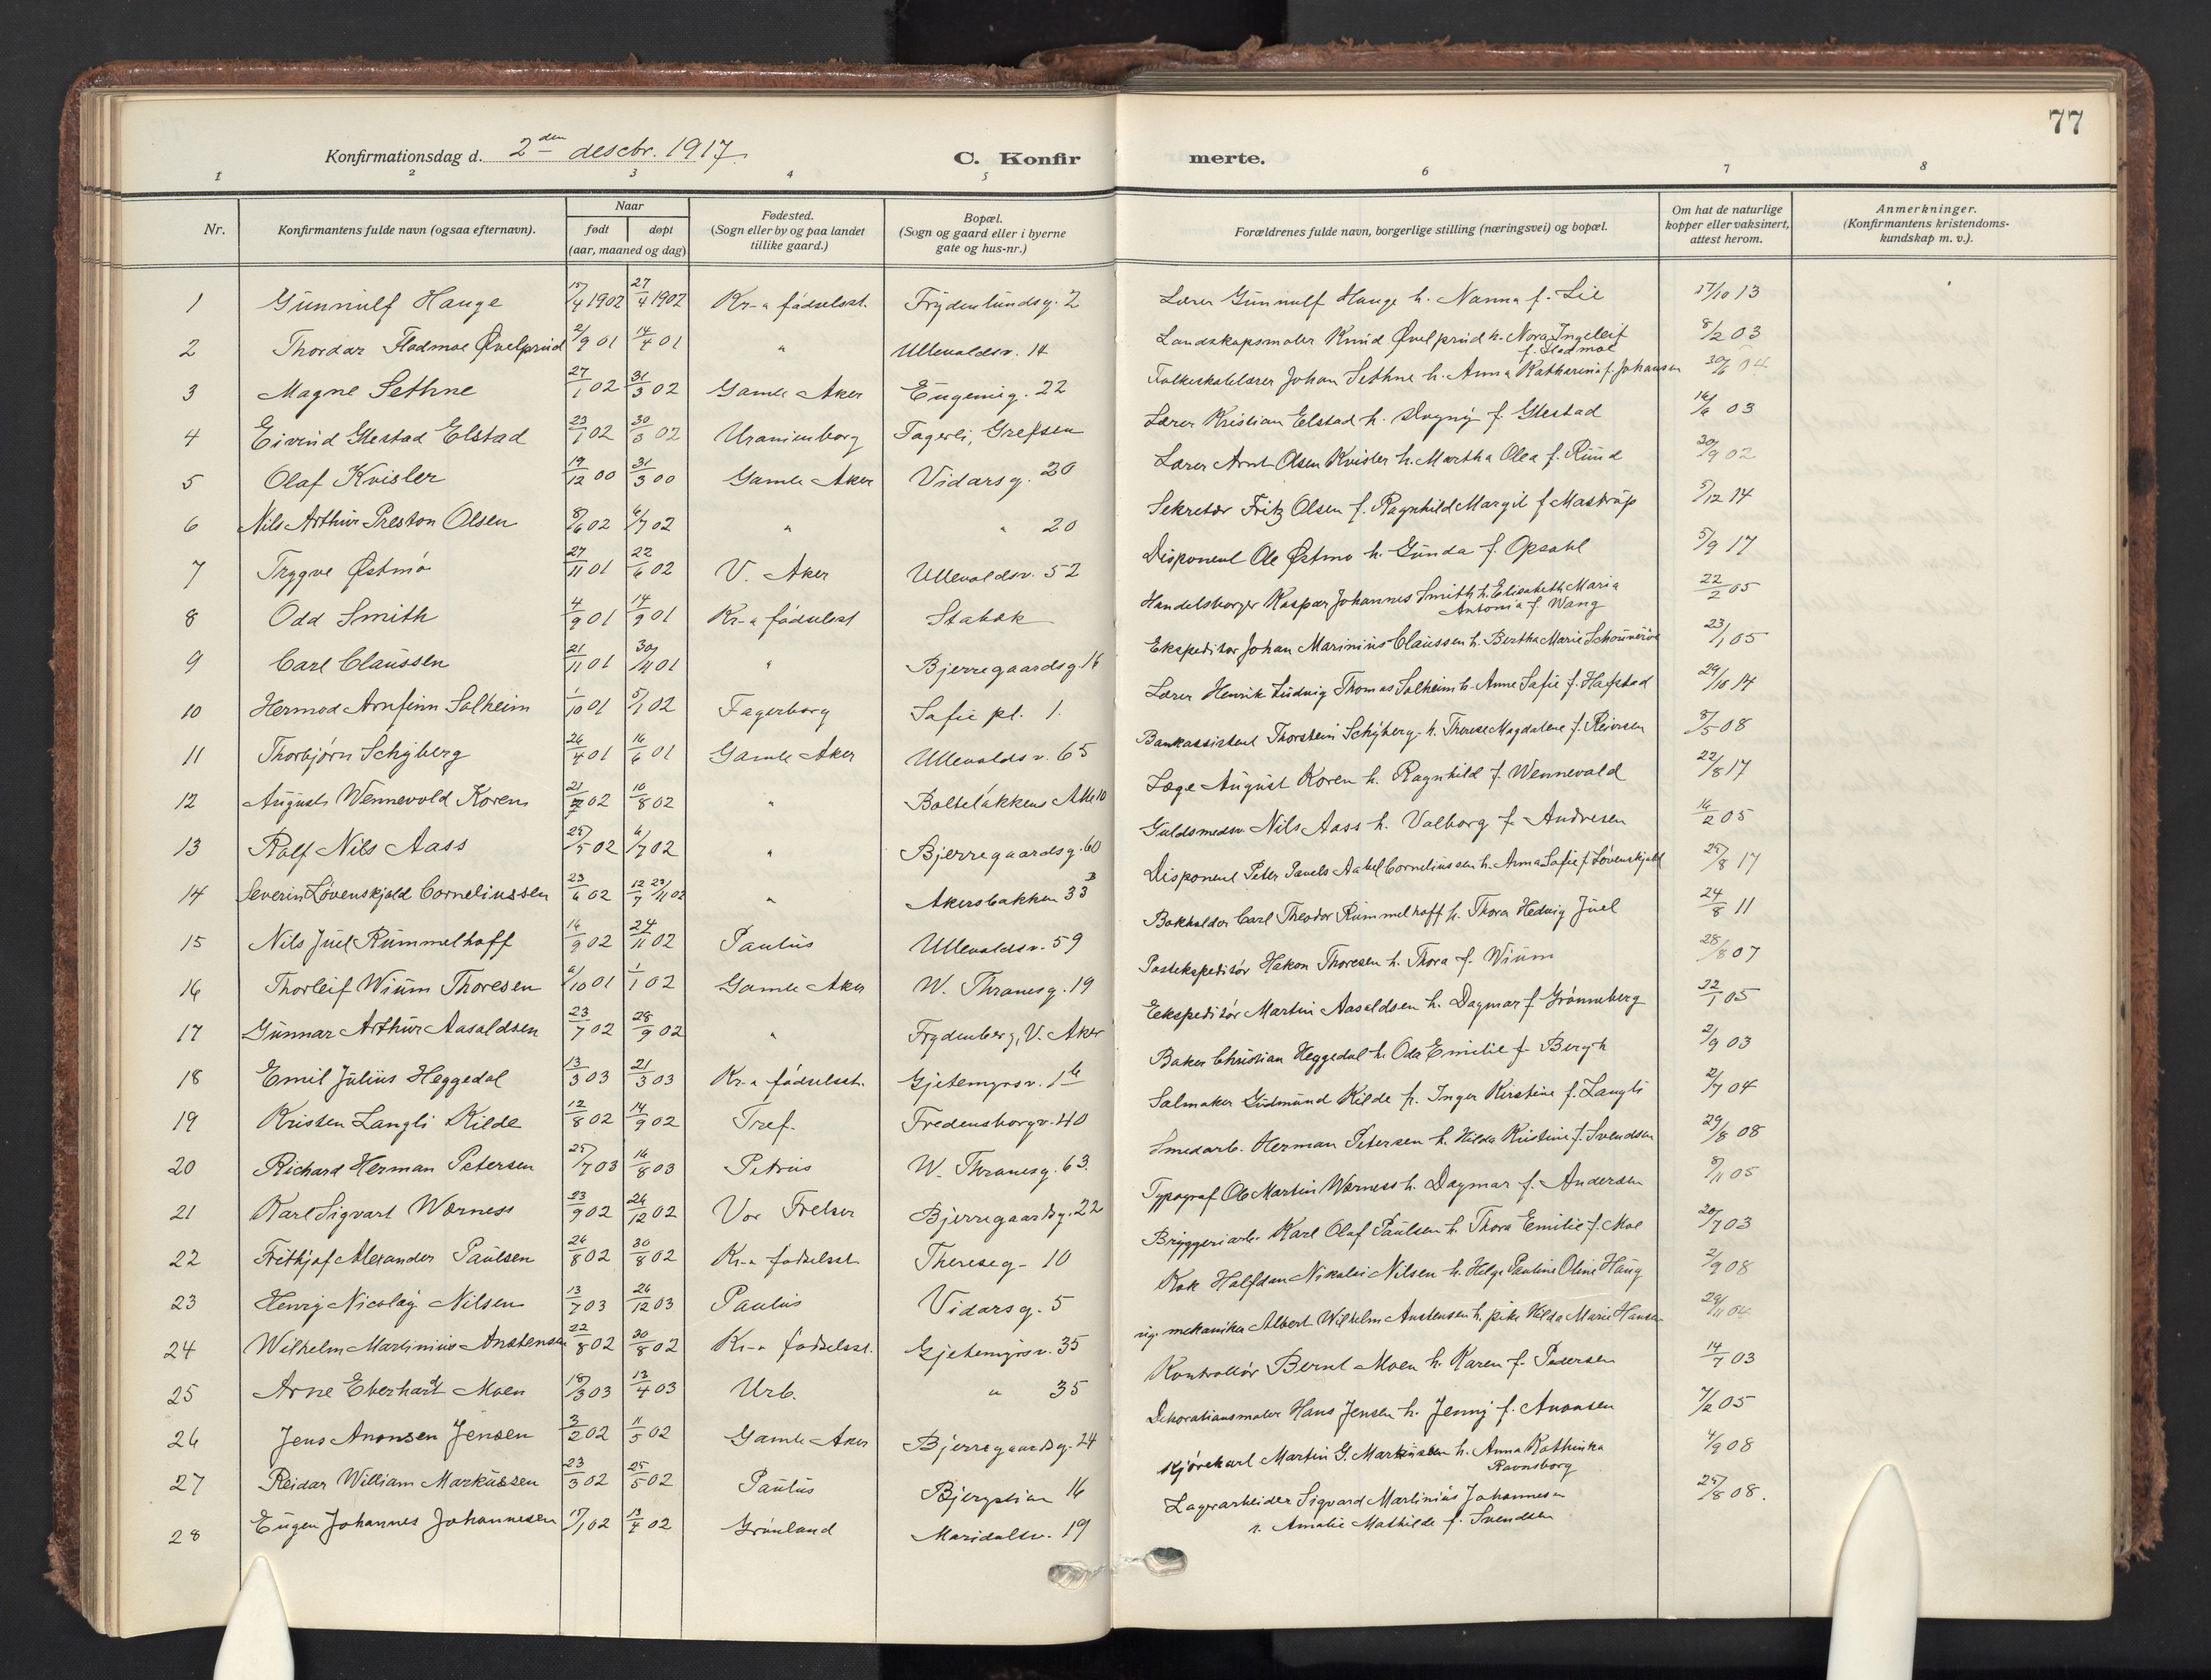 77
Konfirmationsdag d. 2den desebr. 1917.
C. Konfirmerte.
1 2 3 4 5 6 7 8
Nr.
Konfirmantens fulde navn (ogsaa efternavn).
Naar
født
døpt
(aar, maaned og dag)
Fødested.
(Sogn eller by og paa landet
tillike gaard.)
Bopæl.
(Sogn og gaard eller i byerne
gate og hus-nr.)
Forældrenes fulde navn, borgerlige stilling (næringsvei) og bopæl.
Om hat de naturlige
kopper eller vaksinert,
attest herom.
Anmerkninger.
(Konfirmantens kristendoms-
kundskap m. v.).
1 Gunnulf Hauge 4 1902 27/4 1902 Kr-a fødselsst. Frydenlundsg. 2 Lærer Gunnulf Hauge h. Nanna f. Lie 17/10 13
2 Thordar Fladmoe Øvelprud 2/9 01 14/4 01 " Ullevoldsv. 14 Landskapsmaler Knud Øvelprud h. Nora Ingeleif
f. Fladmoe 8/2 03
3 Magne Sethne 27/1 02 31/3 02 Gamle Aker Eugenig. 22 Folkeskolelærer Johan Sethne h. Anna Katharina f. Johansen 30/6 04
4 Eivind Glestad Elstad 23/1 02 30/3 02 Uranienborg Fagerli, Grefsen Lærer Kristian Elstad h. Dagny f. Glestad 16/6 03
5 Olaf Kvisler 19/12 00 31/3 00 Gamle Aker Vidarsg. 20 Lærer Arnt Olsen Kvisler h. Martha Olea f. Rund 30/9 02
6 Nils Arthur Preston Olsen 8/6 02 6/7 02 " " 20 Sekretær Fritz Olsen f. Ragnhild Margit f Mastrup 5/12 14
7 Trygve Østmo 27/11 01 22/6 02 V. Aker Ullevoldsv. 52 Disponent Ole Østmo h. Gunda f. Opsahl 5/9 17
8 Odd Smith 4/9 01 14/9 01 Kr-a fødselsst Stabæk Handelsborger Kaspar Johannes Smith h. Elisabeth Maria
Antonia f. Wang 22/2 05
9 Carl Claussen 21/11 01 30/11 01 " Bjerregaardsg. 16 Ekspeditør Johan Marinius Claussen h. Bertha Marie 23/1 05
10 Hermod Arnfinn Solheim 1/10 01 5/1 02 Fagerborg Sofie pl. 1. Lærer Henrik Ludvig Thomas Solheim h. Anne Sofie f. Hafstad 29/10 14
11 Thorbjørn Schyberg 26/4 01 16/6 01 Gamle Aker Ullevoldsv. 65 Bankassistent Thorstein Schyberg h. Therese Magdalene f. Reiersen 8/5 08
12 August Wennevold Koren 21/ 02 10/8 02 " Bolteløkkens Alle 10 Læge August Koren h. Ragnhild f. Wennevold 22/8 17
13 Rolf Nils Aass 25/5 02 6/7 02 " Bjerregaardsg. 60 Guldsmedsv. Nils Aass h. Valborg f. Andresen 16/2 05
14 Severin Løvenskjold Corneliussen 23/6 02 12/7 23/11 02 " Akersbakken 33 B Disponent Peter Pavels Aabel Corneliussen h. Anna Sofie f. Løvenskjold 25/8 17
15 Nils Juel Rummelhoff 16/9 02 24/11 02 Paulus Ullevoldsv. 59 Bokholder Carl Theodor Rummelhoff h. Thora Hedvig Juel 24/8 11
16 Thorleif Wium Thoresen 6/10 01 1/1 02 Gamle Aker W. Thranesg. 19 Postekspeditør Hakon Thoresen h. Thora f. Wium 28/8 07
17 Gunnar Arthur Aasaldsen 23/7 02 28/9 02 " Frydenberg, V. Aker Eekspeditør Martin Aasaldsen h. Dagmar f. Grønneberg 22/1 05
18 Emil Julius Heggedal 13/3 03 21/3 03 Kr-a fødselsst. Gjetemyrsv. 1b Baker Christian Heggedal h. Oda Emilie f. Bergh 2/9 03
19 Kristen Langli Kilde 12/8 02 14/9 02 Tref. Fredensborgv. 40 Salmaker Gudmund Kilde h. Inger Kirstine f. Langli 2/7 04
20 Richard Herman Petersen 25/7 03 16/8 03 Petrus W. Thranesg. 63. Smedarb. Herman Petersen h. Hilda Kristine f. Svendsen 29/8 08
21 Karl Sigvart Wærness 23/9 02 26/12 02 Vor Frelser Bjerregaardsg. 22 Typograf Ole Martin Wærness h. Dagmar f. Andersen 8/11 05
22 Frithjof Alexander Paulsen 26/8 02 30/8 02 Kr-a fødselsst. Thereseg- 10 Bryggeriarb. Karl Olaf Paulsen h. Thora Emilie f. Moe 20/7 03
23 Henry Nicolay Nilsen 13/7 03 26/12 03 Paulus Vidarsg. 5 Kok Halfdan Nikolai Nilsen h. Helga Pauline Oline Haug 2/9 08
24 Wilhelm Martinius Anstensen 22/8 02 30/8 02 Kr-a fødselsst. Gjetemyrsv. 35 ug. mekaniker Albert Wilhelm Anstensen h. pike Hilda Marie Hansen 29/11 04
25 Arne Eberhardt Moen 18/3 03 13/4 03 Urb. " 35 Kontrollør Bernt Moen h. Karen f. Pedersen 14/7 03
26 Jens Anonsen Jensen 3/2 02 11/5 02 Gamle Aker Bjerregaardsg. 24 Dekorationsmaler Hans Jensen h. Jenny f. Anonsen 7/2 05
27 Reidar William Markussen 23/3 02 25/5 02 Paulus Bjergstien 16 Kjørekarl Martin G. Markussen h. Anna Kathinka
Ravnsborg 4/9 08
28 Eugen Johannes Johannesen 17/1 02 13/4 02 Grønland Maridalsv. 19 Lagerarbeider Sigvard Martinius Johannesen
h. Amalie Mathilde f. Svendsen 25/8 08.